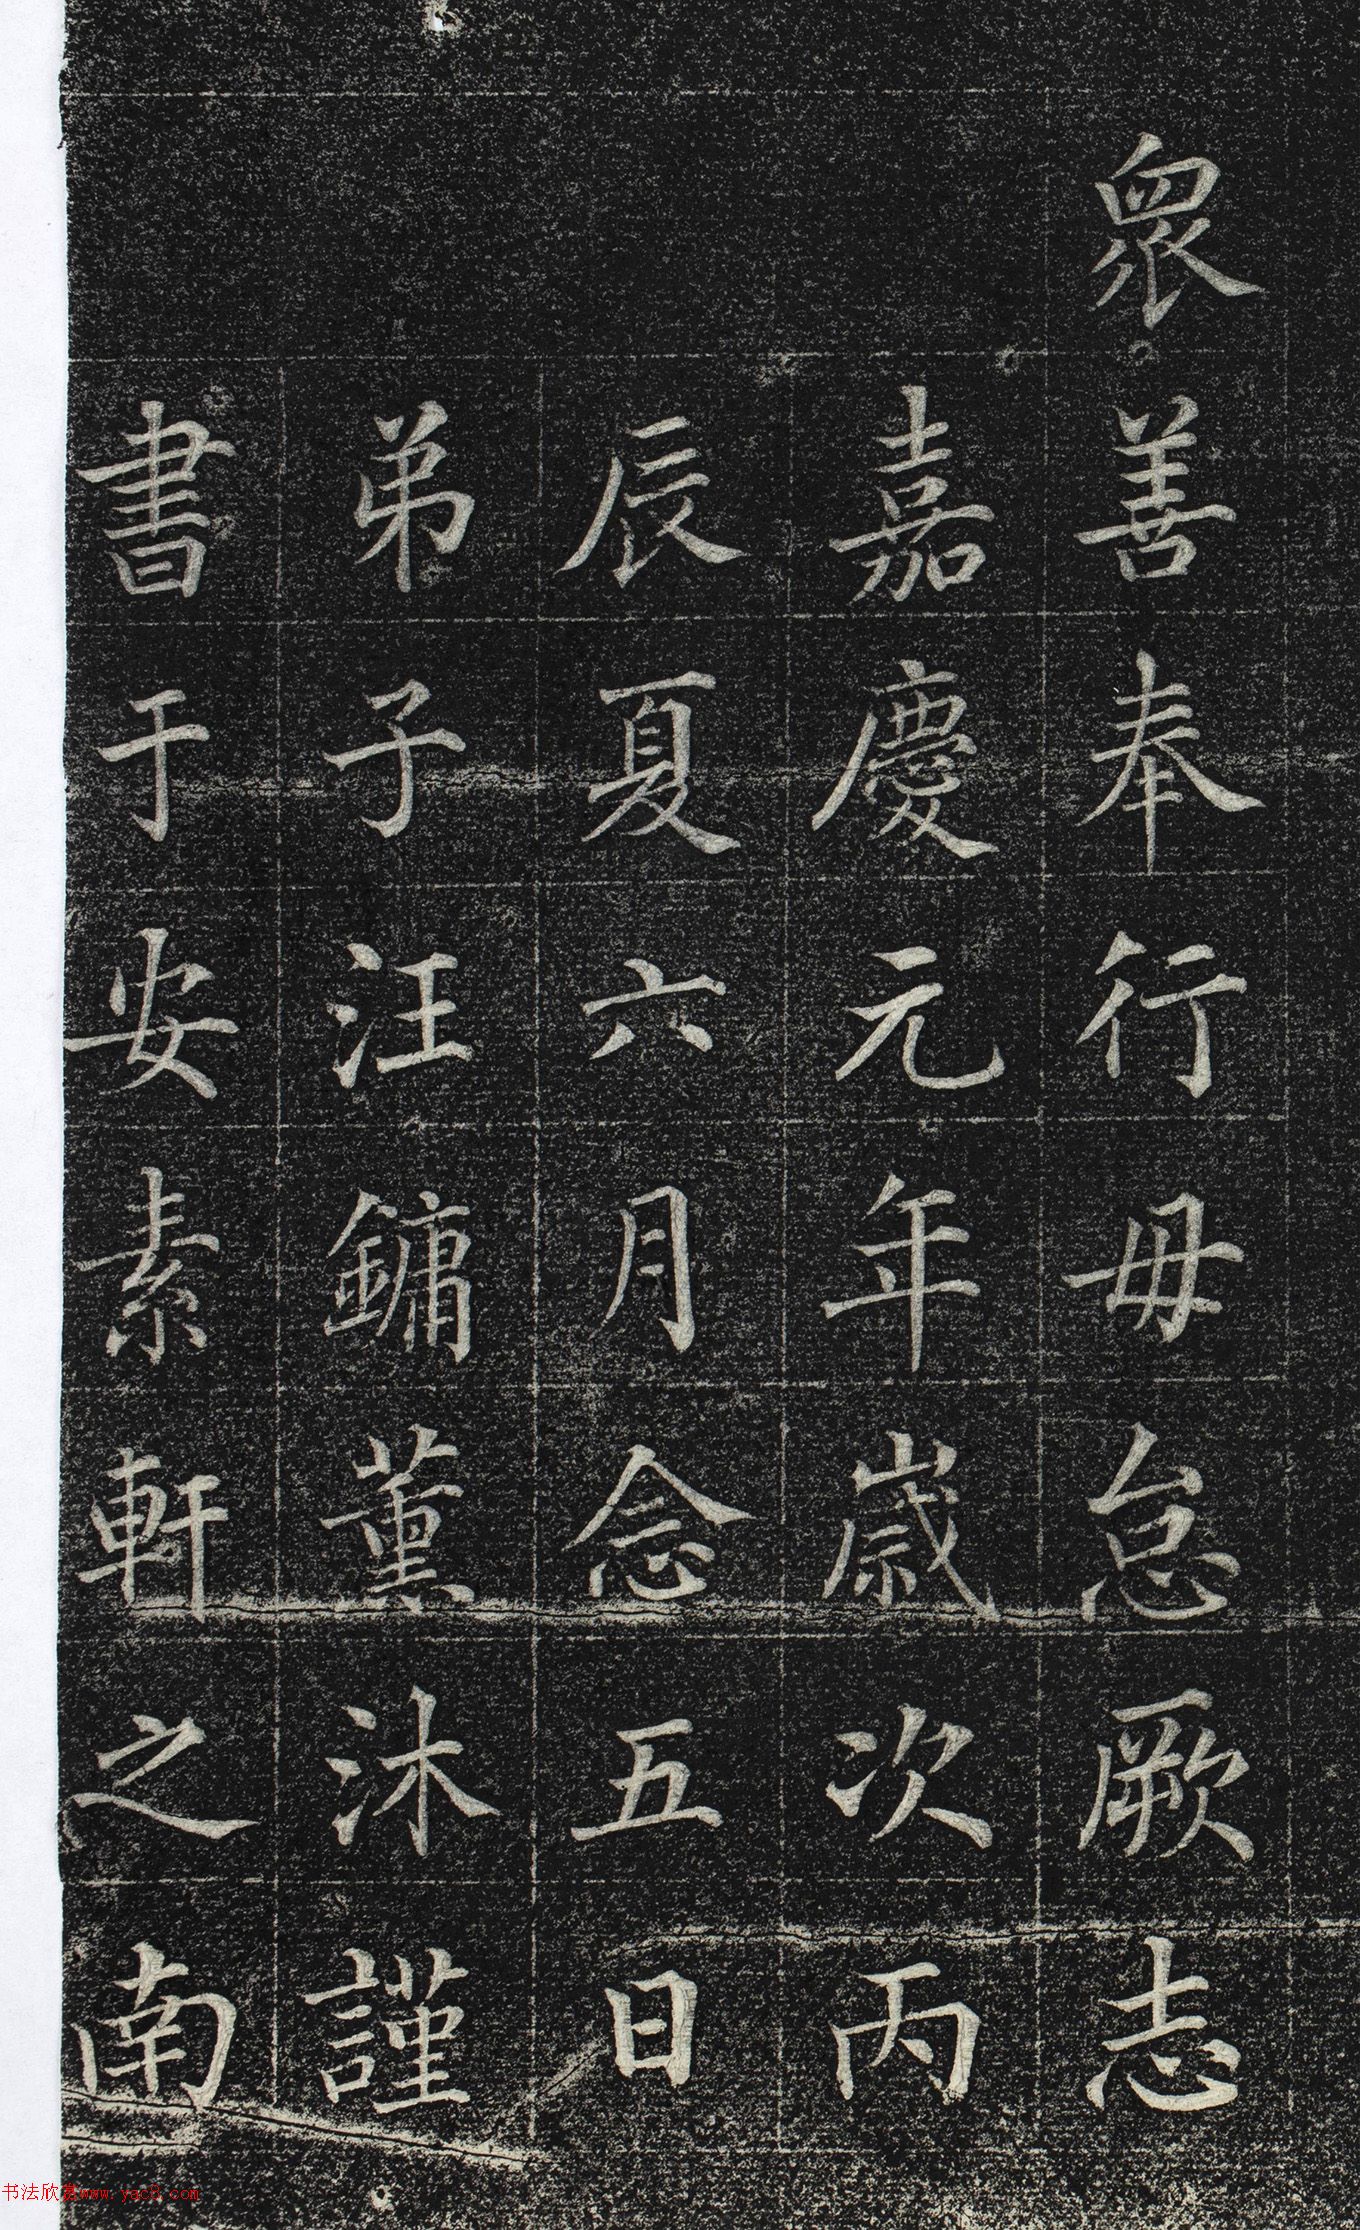 眾善奉行毋怠厥志
嘉慶元年歲次丙
辰夏六月念五日
弟子汪鏞薰沐謹
書于安素軒之南
书法欣赏www.yac8.com